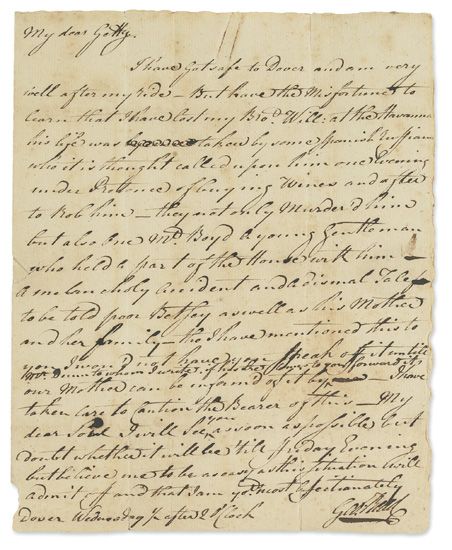 My dear Getty.
I have Got safe to Dover and am very
well after my ride – But have the Misfortune to
learn that I have lost my Bro.r Will: at the Havanna
his life was taken by some Spanish Ruffians
who it is thought called upon him one Evening
under Pretence of buying Wines and after
to Rob him – they not only Murder'd him
but also One Mr. Boyd a young Gentleman
who held a part of the House with him –
a melancholy accident and a dismal Tale
to be told poor Betsey as well as his Mother
and her family – tho I have mentioned this to
you I wou'd not have you speak of it untill
Mr. to whom I write if
our Mother can be inform'd of it by – I have
taken care to Caution the Bearer of this – My
dear Soul I will See you as soon as possible but
doubt whether it will be till Friday Evening
but believe me to be as easy as this Situation will
admit of and that I am yrs. most affectionately
Geo:
Dover Wednesday ½ after 2 OClock